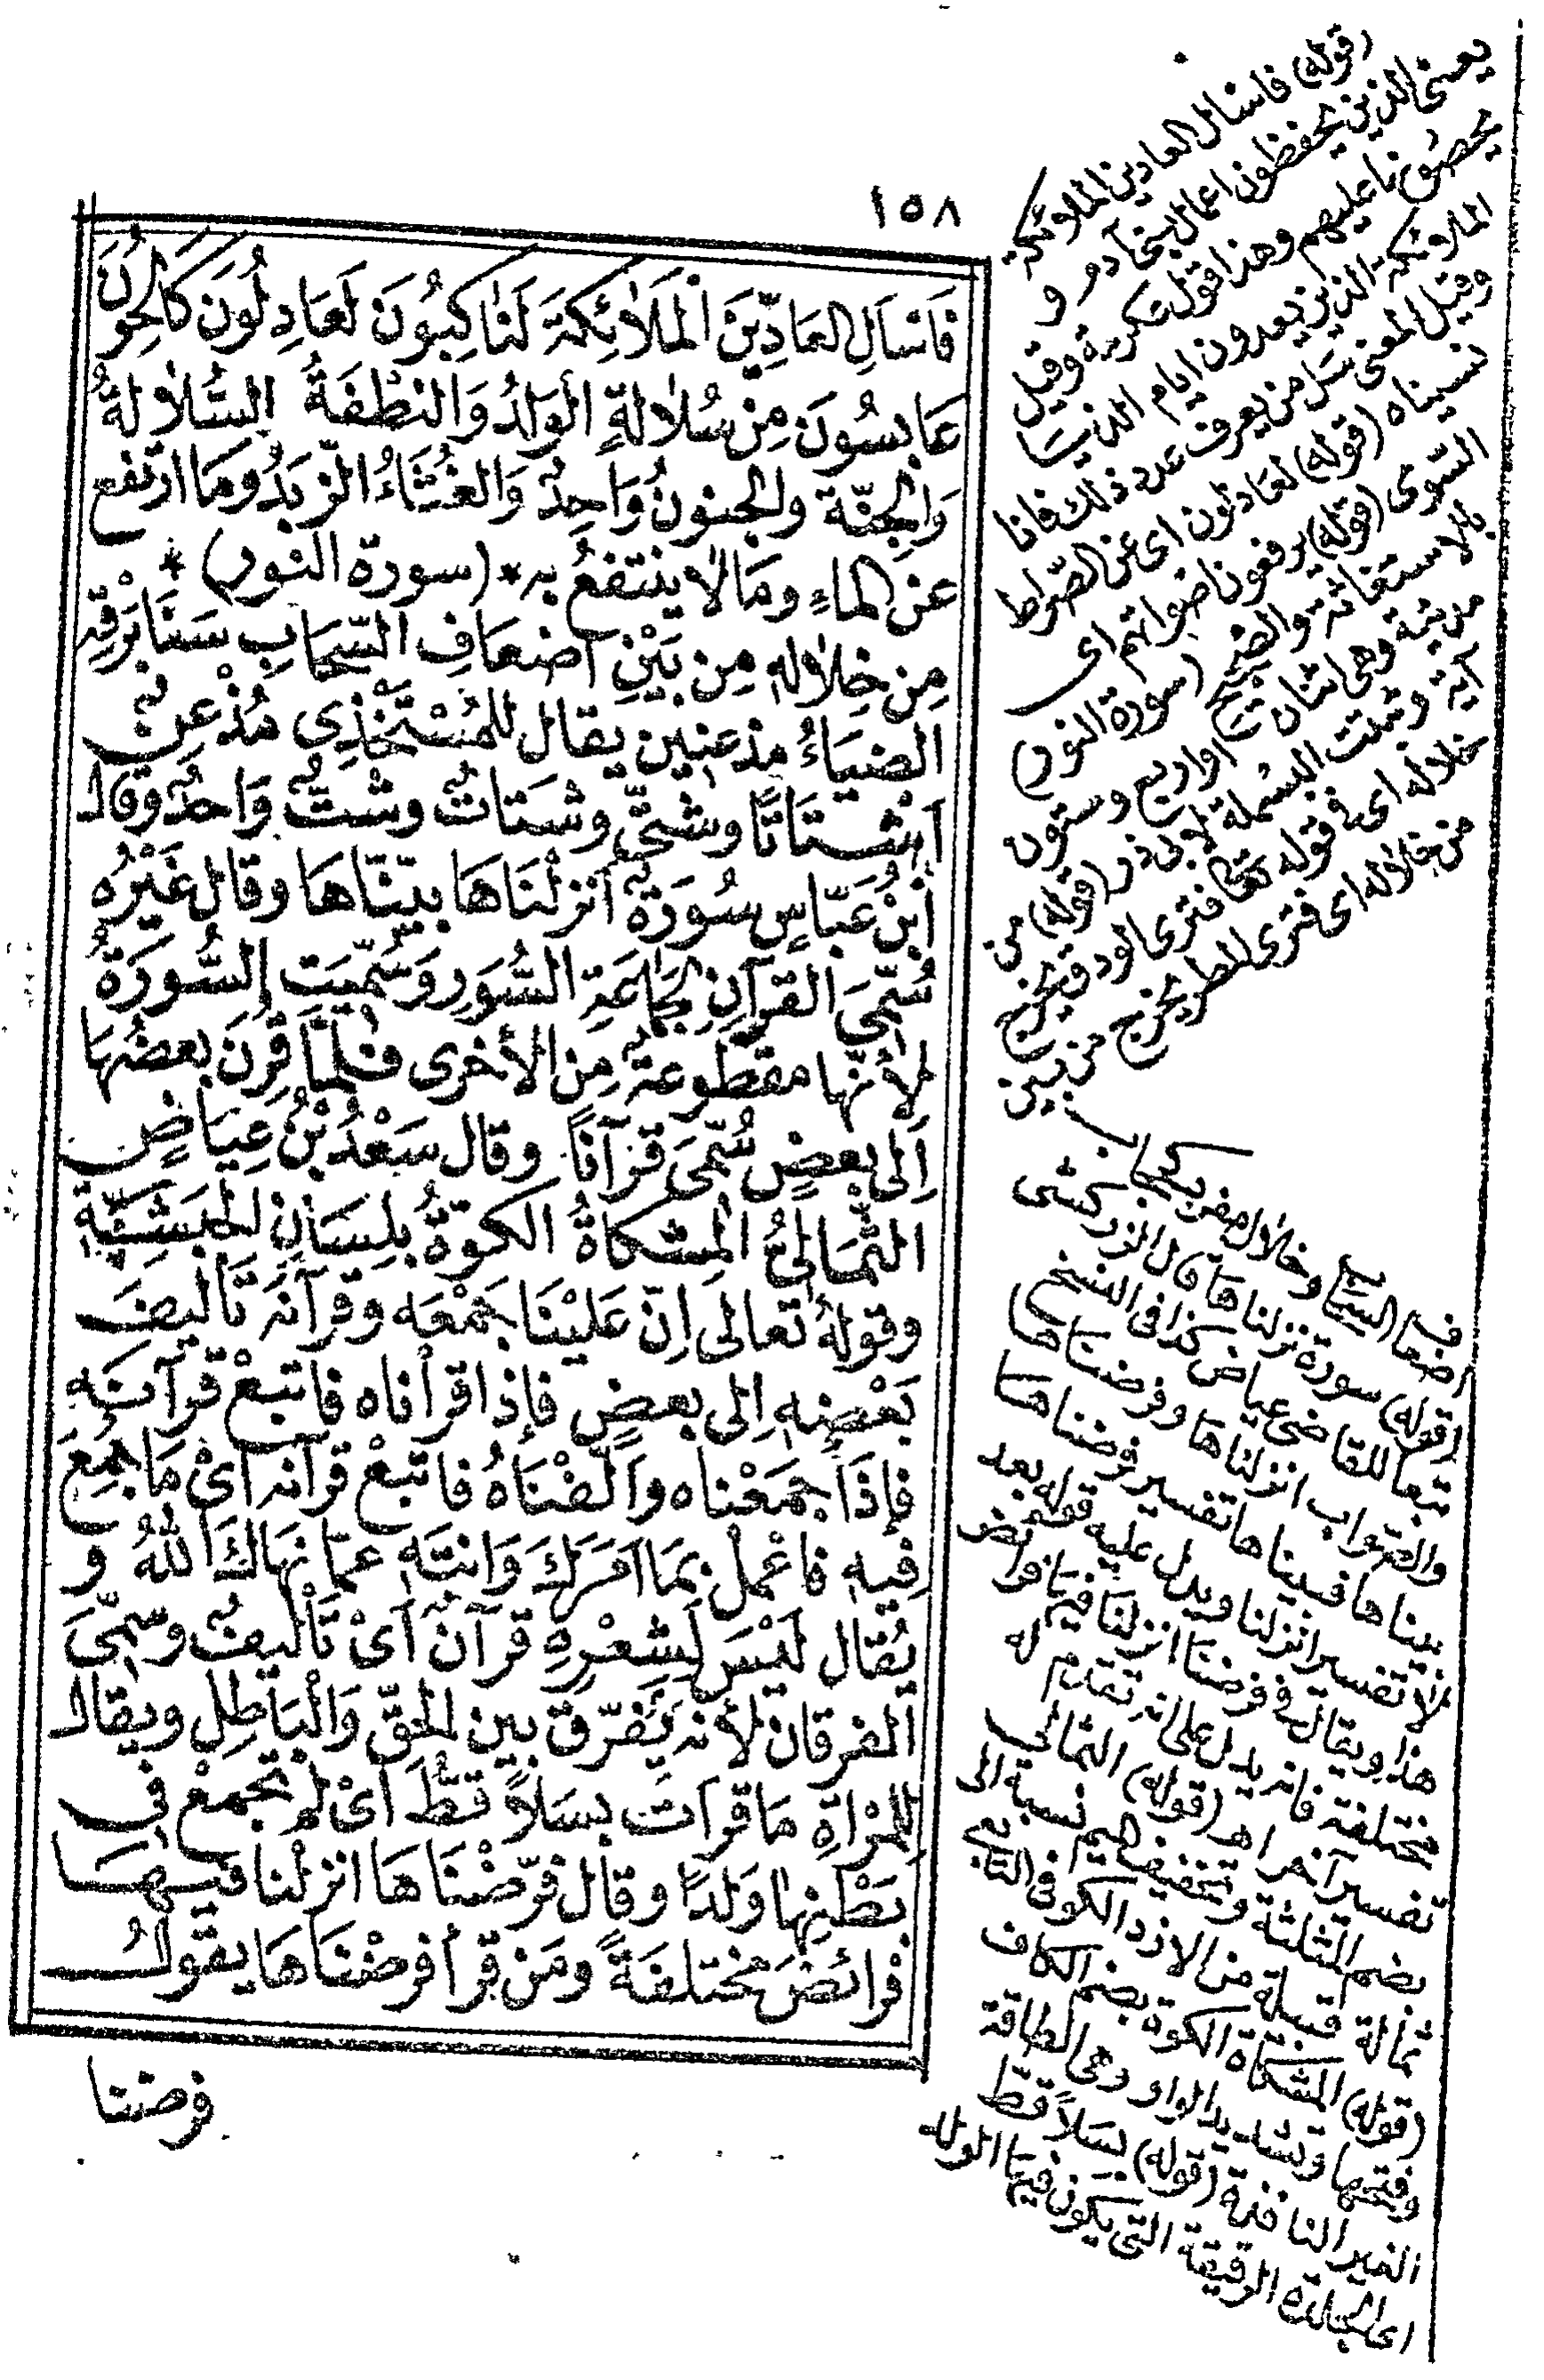 ١٥٨
فَاسْأَلِ العَادِّينَ الْمَلَائِكَةَ لَنَاكِبُونَ لَعَادِلُونَ كَالِحُونَ
عَابِسُونَ مِنْ سُلَالَةٍ الوَلَدُ وَالنُّطْفَةُ السُّلَالَةُ
وَالْجِنَّةُ والجنونُ وَاحِدٌ وَالغُثَاءُ الزَّبَدُ وَمَا ارْتَفع
عَنِ الماءِ ومَا لا يُنْتَفَعُ بِهِ * (سورة النور) *
مِنْ خِلَالِهِ مِن بَيْنِ أَضعَافِ السَّحَابِ سَنَا بَرْقِهِ
الضِيَاءُ مذعنين يقال للمُسْتَخْذِى مُذْعِنٌ
أَشْتَاتًا وشَتَّى وشَتَاتٌ وشَتٌّ وَاحِدٌ وَقَال
ابْنُ عَبَّاسٍ سُورَةٌ أَنْزَلْنَاهَا بيَّنَّاهَا وقال غَيْرُهُ
سُمِّيَ القُرآنُ لِجَمَاعَةِ السُّوَرِ وَسُمِّيَتِ السُّورَةُ
لأَنَّها مقطوعةٌ مِنَ الأخرى فلمَّا قُرِنَ بعضُهَا
إِلَى بعضٍ سُمِّىَ قرآنًا وقال سَعْدُ بْنُ عِيَاضٍ
الثُّمَالِيُّ المِشْكَاةُ الكُوَّةُ بلِسَانِ الحَبَشِيَّةِ
وقولهُ تعالَى إِنَّ عَلَيْنَا جَمْعَه وقرآنَه تَأْلِيفَ
بَعْضِهِ إِلى بعضٍ فإذا قرأناه فاتَّبِعْ قرآنَه
فإِذَا جَمَعْناه وأَلَّفْنَاهُ فاتَّبِعْ قرآنه أَيْ مَا جُمِعَ
فيهِ فاعْمَلْ بِمَا أَمَرَكَ وَانْتَهِ عمَّا نَهَاكَ اللهُ و
يُقال لَيْسَ لِشِعْرِهِ قُرآنٌ أَيْ تَأْلِيفٌ وسُمِّيَ
الفرقان لأنه يُفَرِّقُ بين الحَقِّ وَالْبَاطِلِ ويقال
لِلْمَرْأَةِ مَا قرأَتْ بِسَلًا قَطُّ أَيْ لم تَجْمَعْ في
بَطْنِهَا وَلدًا وقال فرَّضْنَاهَا أنزلنا فيهَا
فرائضَ مختلفةً ومَن قرأ فرضْنَاهَا يقول
فرضننا
(قوله) فاسأل العادين الملائكة
يعنى الذين يحفظون اعمال بنى آدم و
يحصونها عليهم وهذا قول عكرمة وقيل
الملائكة الذين يعدون ايام الدنيا
وقيل المعنى سل من يعرف عدد ذلك فانا
نسيناه (قوله) لعادلون اى عن الصراط
السوى (قوله) يرفعون اصواتهم اى
بالاستغاثة والضجيج (سورة النور)
مدنية وهى اثنان او اربع وستون
آية وثبتت البسملة لابى ذر (قوله) من
خلاله اى فى قوله تعالى فترى الودق يخرج
من خلاله اى فترى المطر يخرج من بين
اضعاف السحاب وخلال مفرد كحجاب
(قوله) سورة انزلناها قال الزركشى
تبعا للقاضى عياض كذا فى النسخ
والصواب انزلناها وفرضناها
بيناها فبيناها تفسير فرضناها
لا تفسير انزلنا ويدل عليه قوله بعد
هذا ويقال فى فرضنا انزلنا فيها فرائض
مختلفة فانه يدل على انه تقدم له
تفسير آخر اهـ (قوله) الثمالى
بضم المثلثة وتخفيف الميم نسبة الى
ثمالة قبيلة من الازد الكوفى التابعى
(قوله) المشكاة الكوة بضم الكاف
وفتحها وتشديد الواو وهى الطاقة
الغير النافذة (قوله) بسلًا قط
اى الجلدة الرقيقة التى يكون فيها الولد